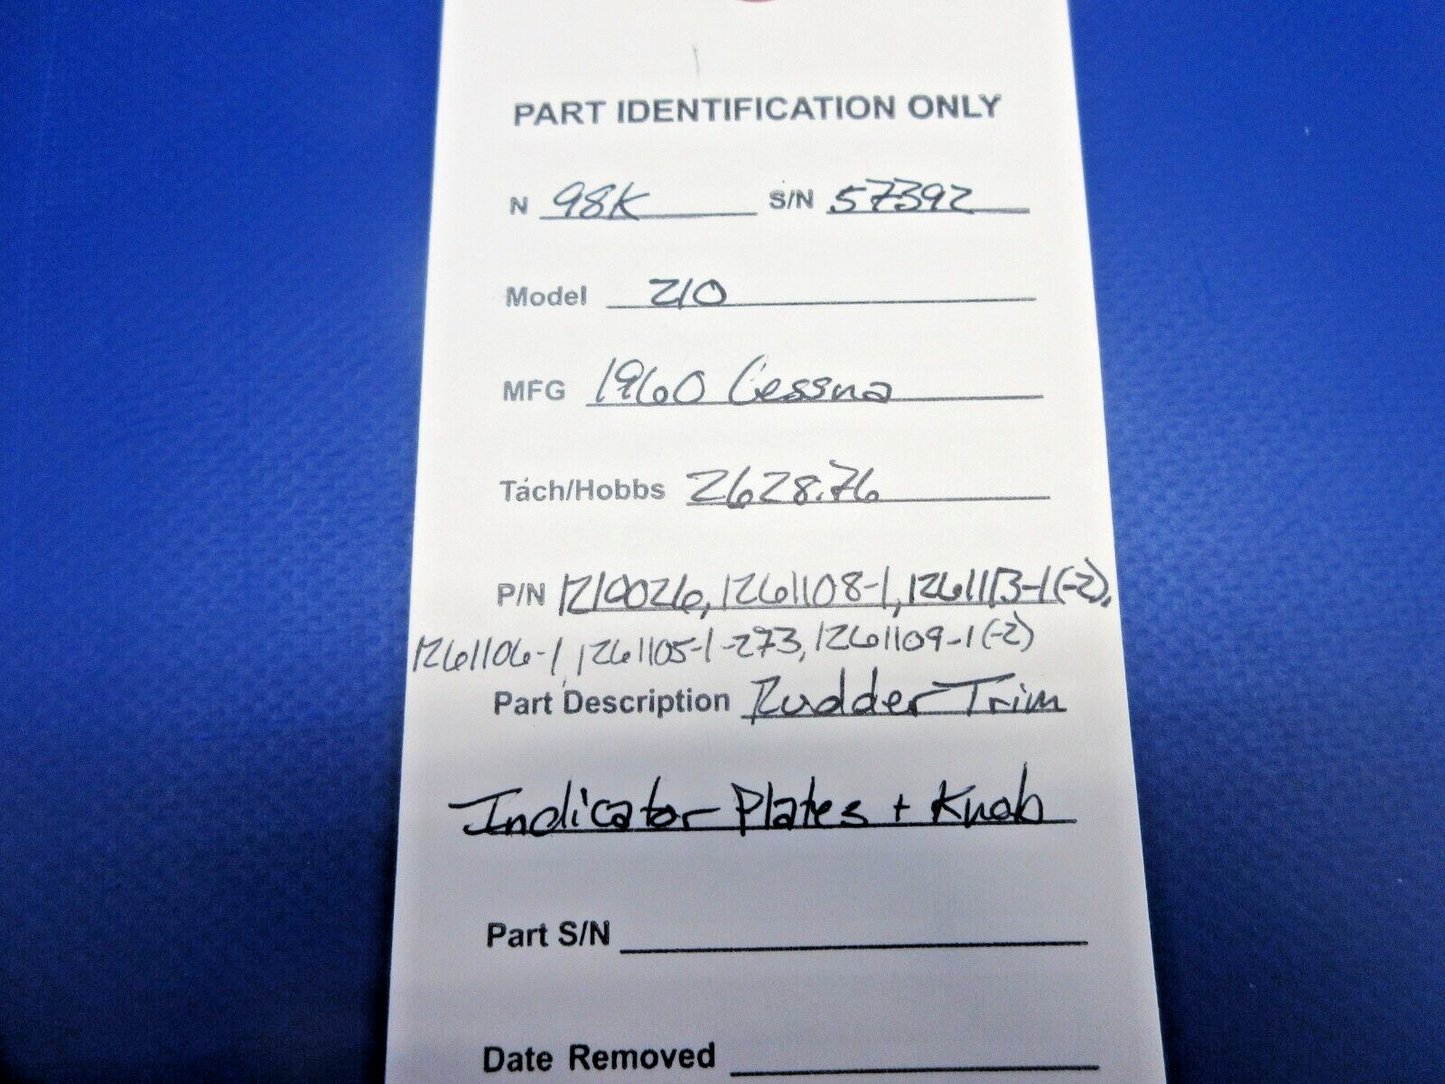 PART IDENTIFICATION ONLY
N 98K S/N 57392
Model 210
MFG 1960 Cessna
Tach/Hobbs 2628.76
P/N 1210026, 1261108-1, 1261113-1(-2),
1261106-1, 1261105-1-273, 1261109-1(-2)
Part Description Rudder Trim
Indicator Plates + Knob
Part S/N
Date Removed